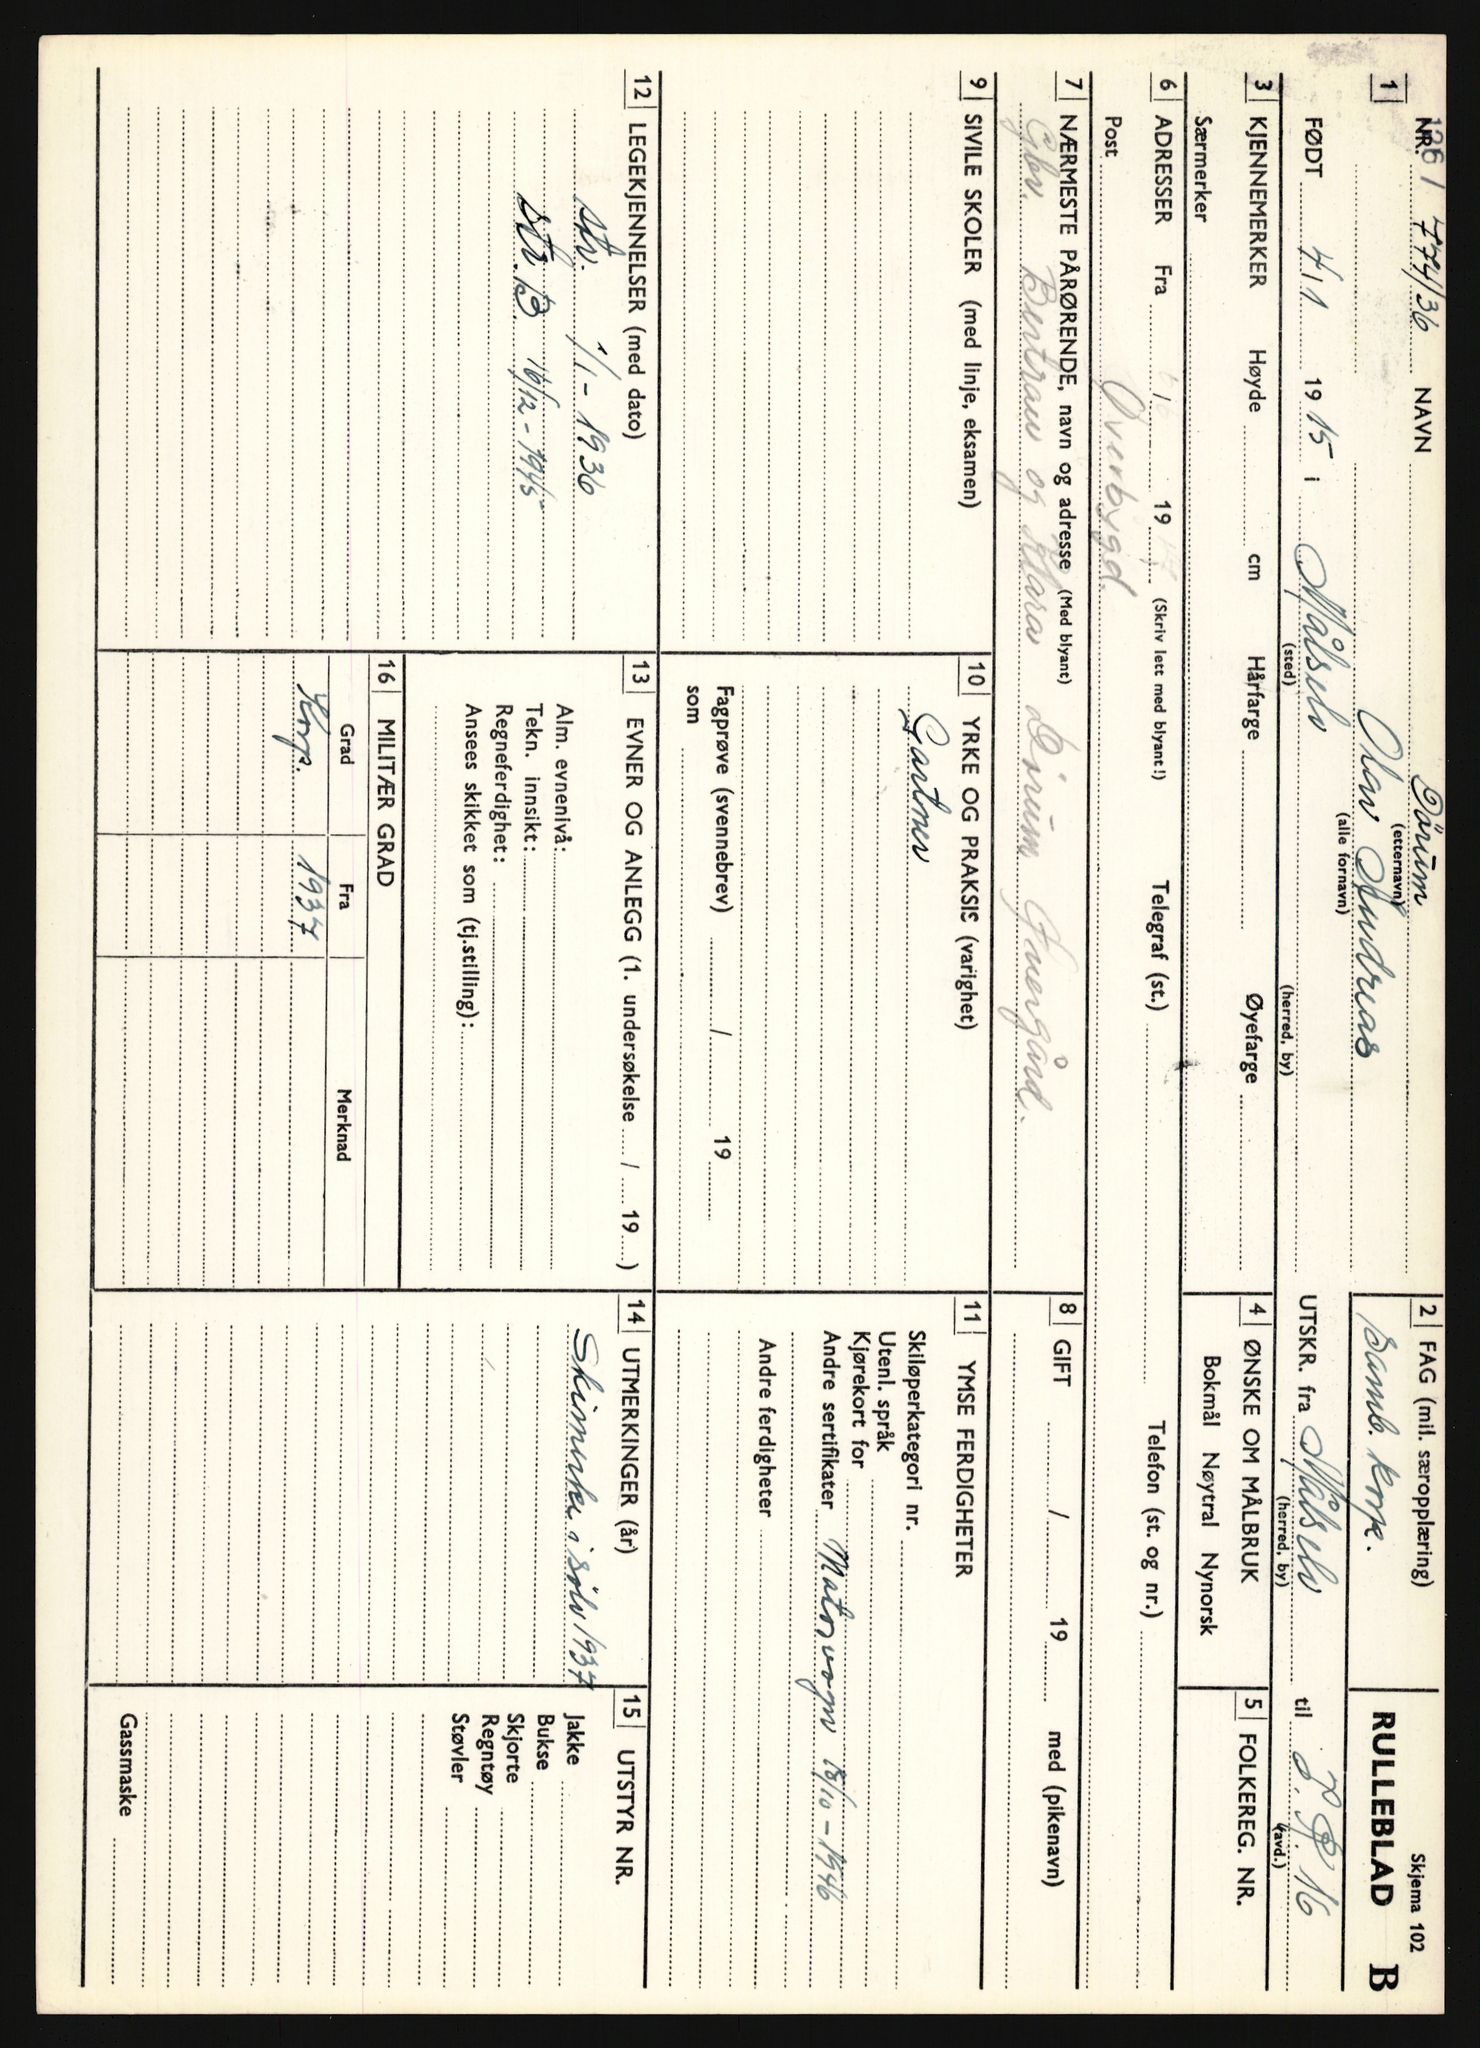 Skjema 102
1 NR. 1261 774/36 NAVN Dørum
(etternavn)
Olav Andreas
(alle fornavn)
2 FAG (mil. særopplæring)
Samb. korp.
RULLEBLAD B
FØDT 4/1 1915 i Målselv
(sted) (herred, by)
UTSKR. fra Målselv til I.R. 16
(herred, by) (avd.)
3 KJENNEMERKER Høyde cm Hårfarge Øyefarge
Særmerker
4 ØNSKE OM MÅLBRUK
Bokmål Nøytral Nynorsk
5 FOLKEREG. NR.
6 ADRESSER Fra / 19 (Skriv lett med blyant!) Telegraf (st.) Telefon (st. og nr.)
Post Øverbygd.
7 NÆRMESTE PÅRØRENDE, navn og adresse (Med blyant)
Gbr. Bertrau og Klara Dørum Iversgård.
8 GIFT / 19 med (pikenavn)
9 SIVILE SKOLER (med linje, eksamen)
10 YRKE OG PRAKSIS (varighet)
Gartner
Fagprøve (svennebrev) / 19
som
11 YMSE FERDIGHETER
Skiløperkategori nr.
Utenl. språk
Kjørekort for
Andre sertifikater Motorvogn 18/10-1946
Andre ferdigheter
12 LEGEKJENNELSER (med dato)
stv. 1/1-1936
str. B 16/12-1945
13 EVNER OG ANLEGG (1. undersøkelse / 19 )
Alm. evnenivå:
Tekn. innsikt:
Regneferdighet:
Ansees skikket som (tj.stilling):
14 UTMERKINGER (år)
Skimerke i sølv 1937
15 UTSTYR NR.
Jakke
Bukse
Skjorte
Regntøy
Støvler
Gassmaske
16 MILITÆR GRAD
Grad Fra Merknad
Korp. 1937